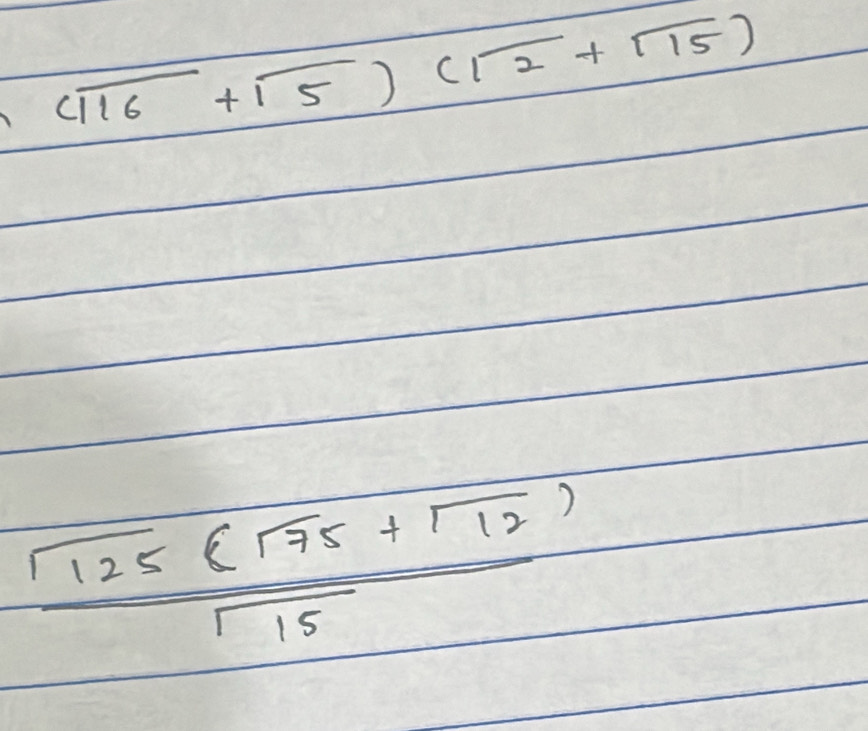 (√16 + √5) (√2 + √15)
√125 (√75 + √12)
√15